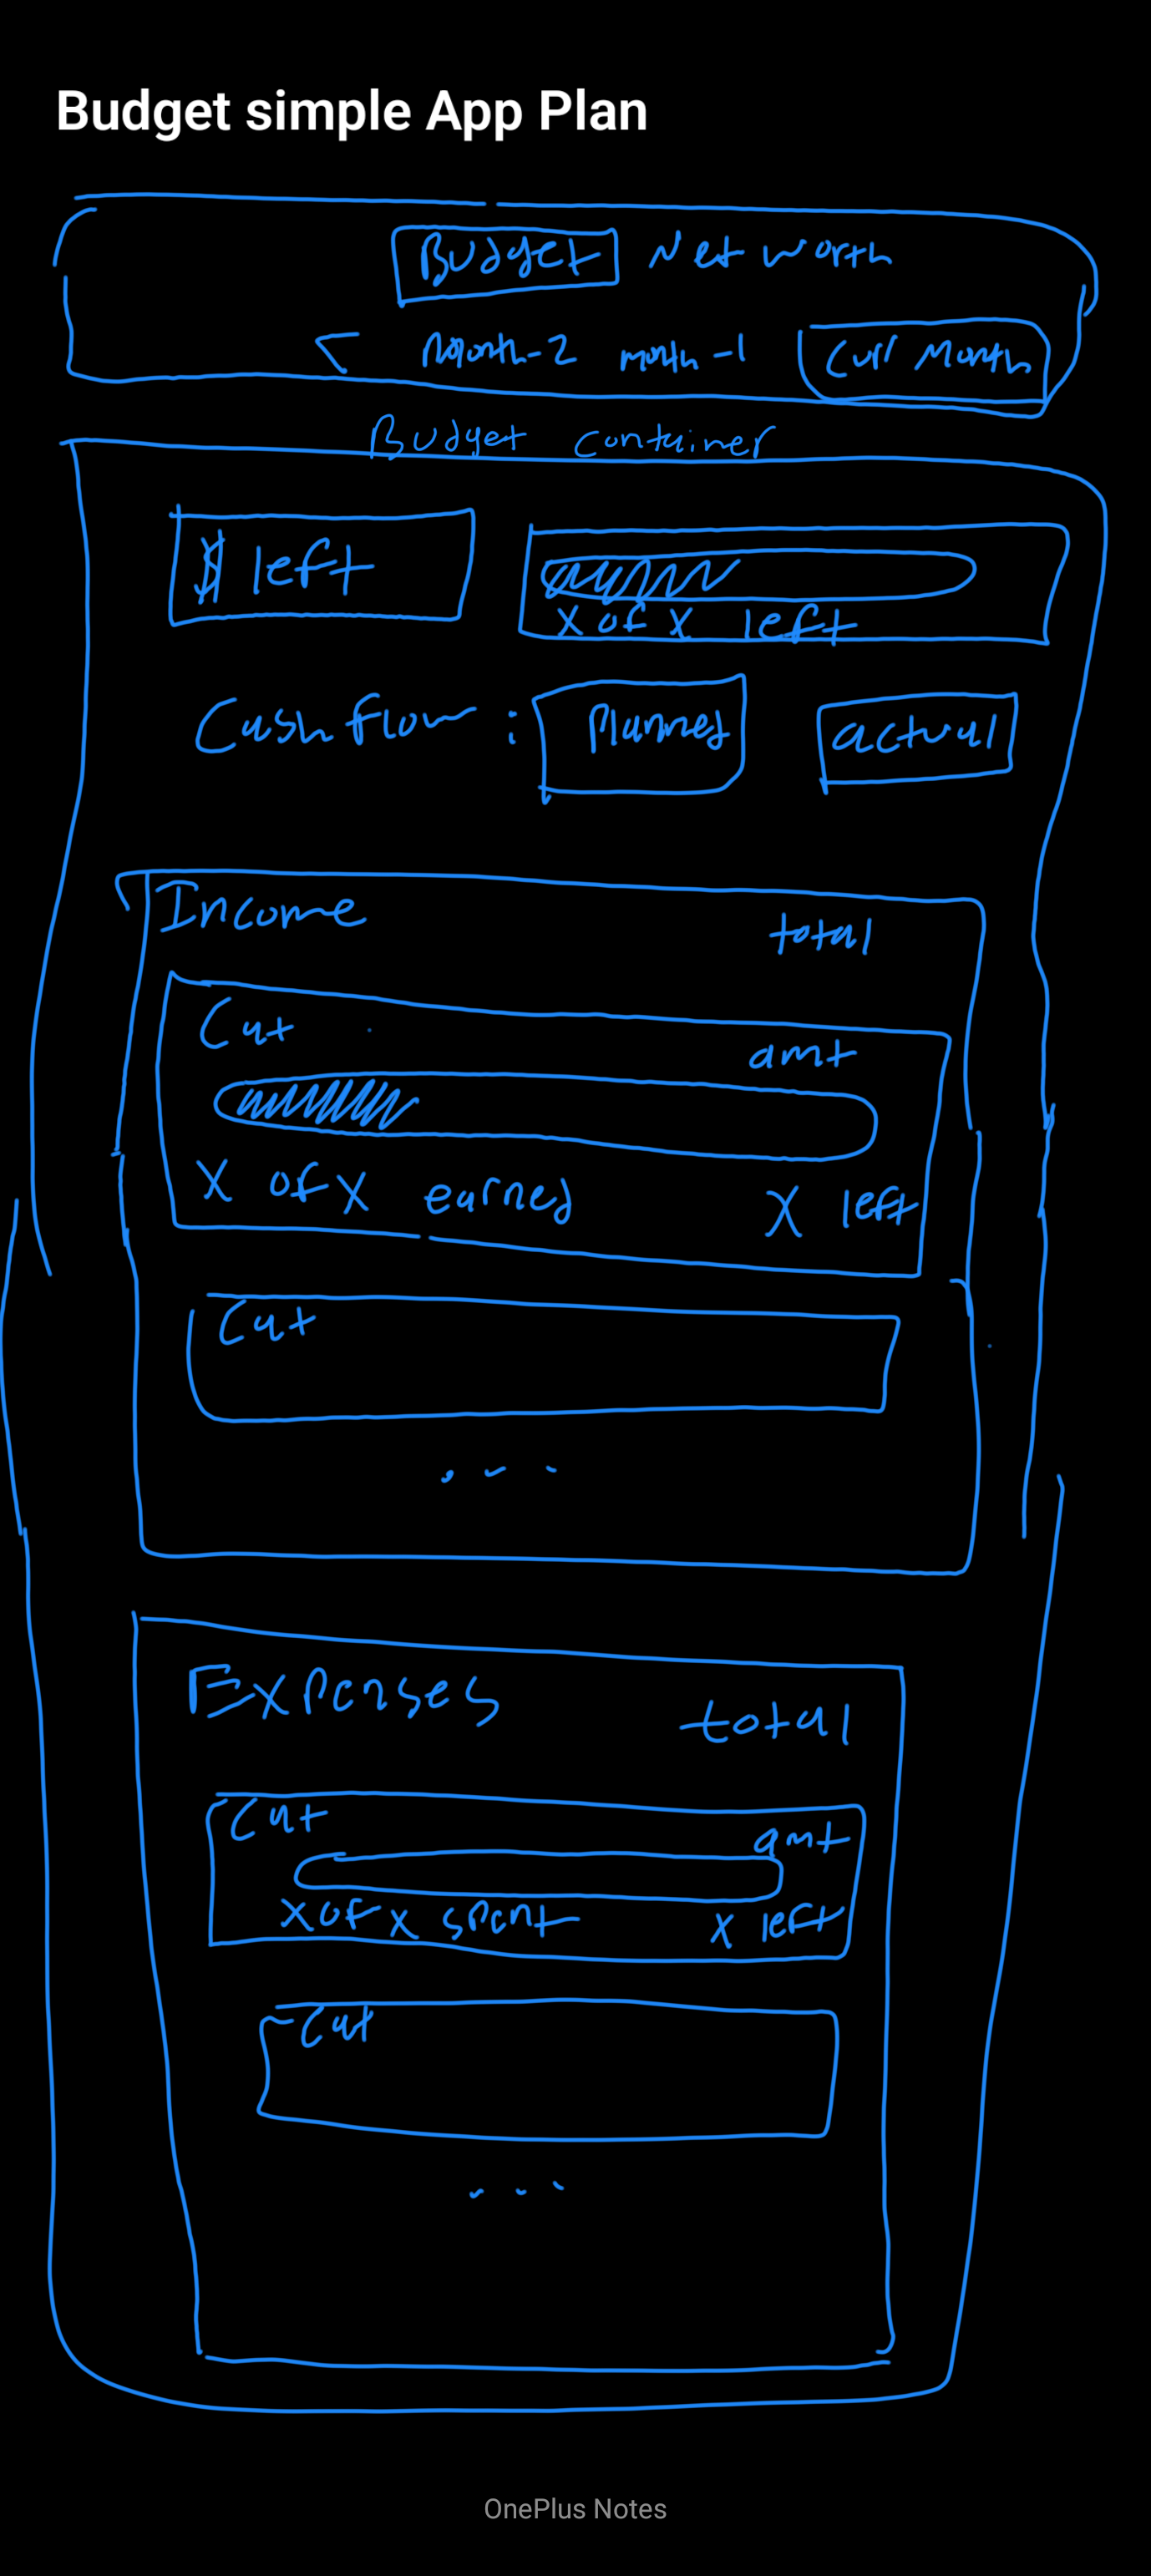 Budget simple App Plan
Budget Net worth
< month-2 month-1 Curr Month
Budget Container
$ left
X of X left
Cashflow: Planned actual
Income total
Cat amt
X of X earned X left
Cat
...
Expenses total
Cat amt
X of X spent X left
Cat
...
OnePlus Notes